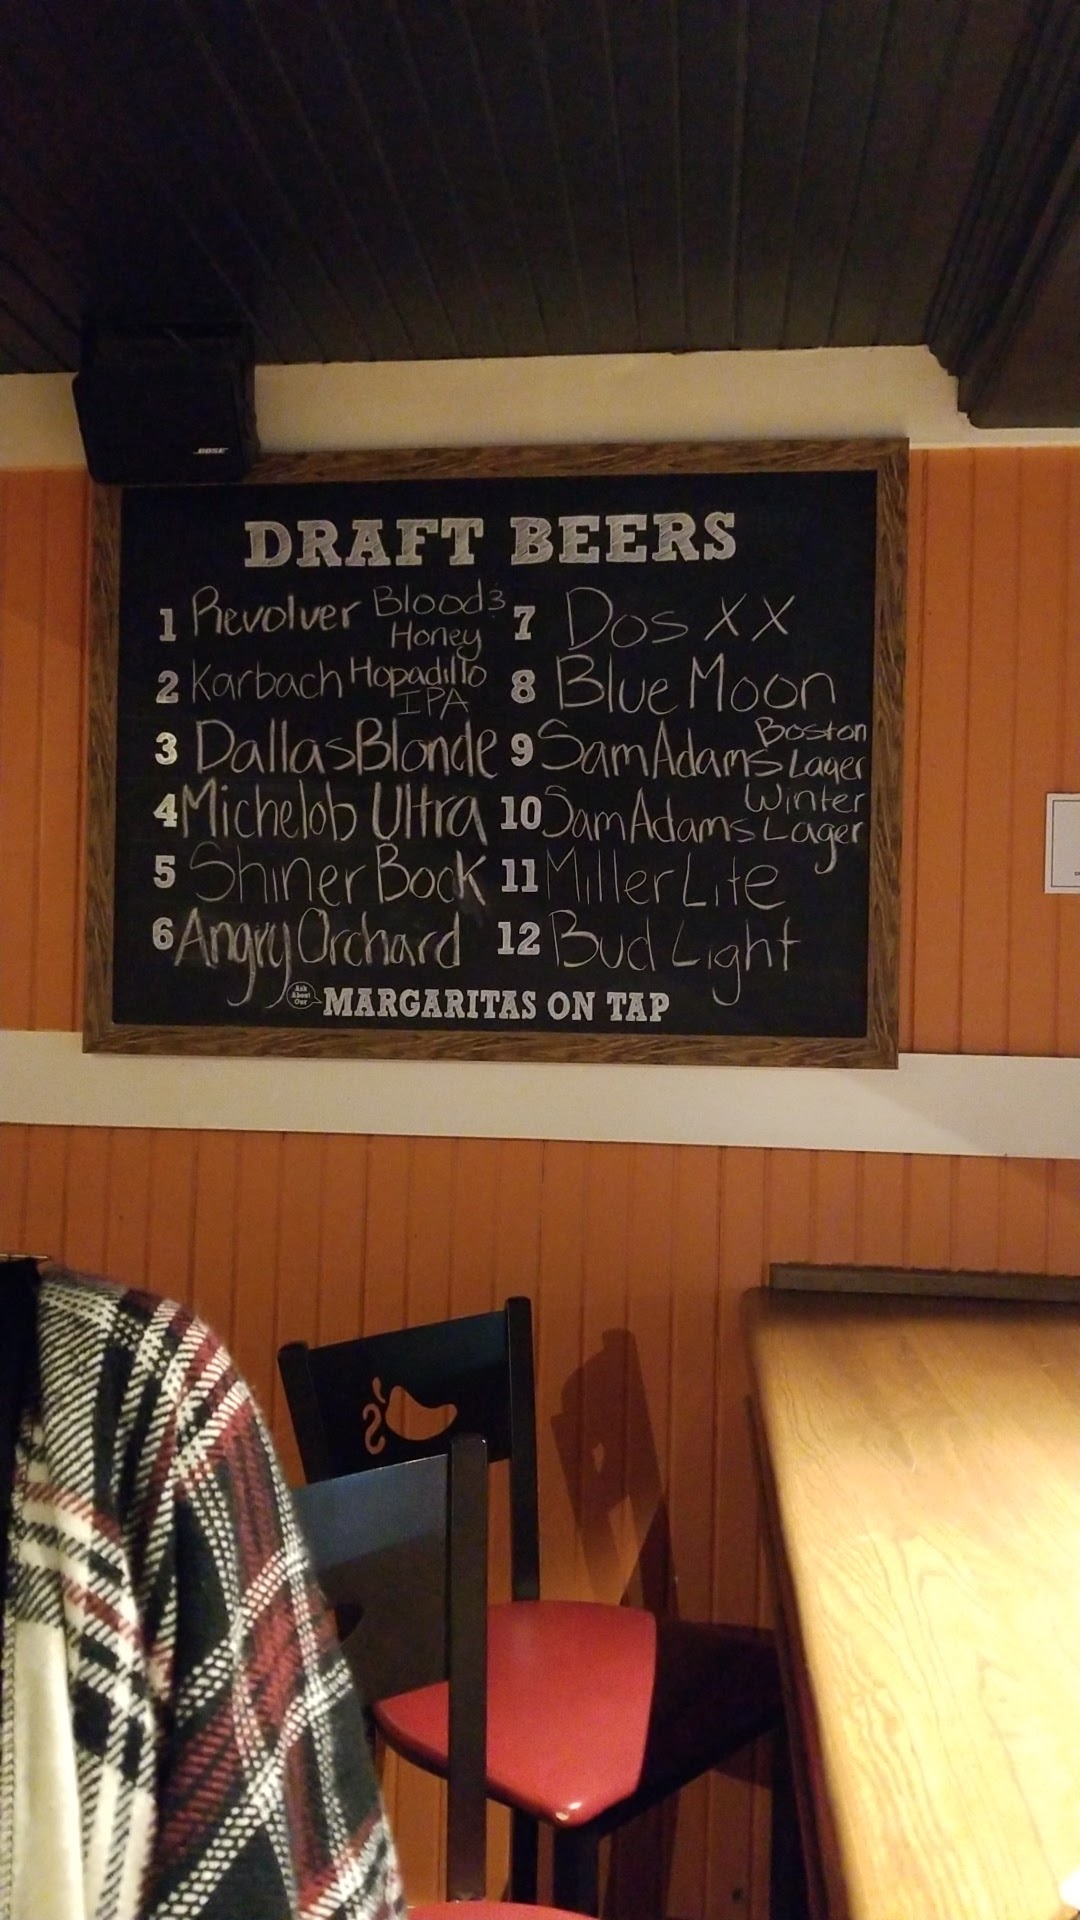 BOSE
DRAFT BEERS
1 Revolver Blood &
Honey
2 Karbach Hopadillo
IPA
3 Dallas Blonde
4 Michelob Ultra
5 Shiner Bock
6 Angry Orchard
7 Dos XX
8 Blue Moon
9 Sam Adams Boston
Lager
10 Sam Adams Winter
Lager
11 Miller Lite
12 Bud Light
Ask
About
Our
MARGARITAS ON TAP
's